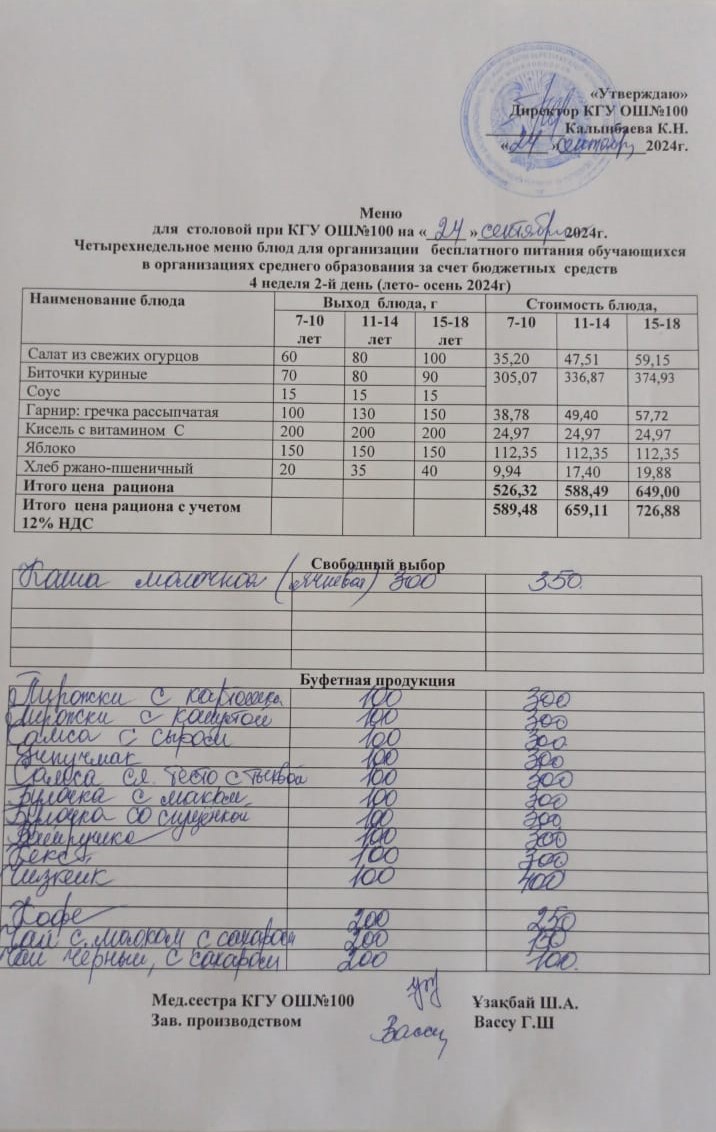 «Утверждаю»
Директор КГУ ОШ№100
Калынбаева К.Н.
«24» сентябр 2024г.
Меню
для столовой при КГУ ОШ№100 на «24» сентябр 2024г.
Четырехнедельное меню блюд для организации бесплатного питания обучающихся
в организациях среднего образования за счет бюджетных средств
4 неделя 2-й день (лето- осень 2024г)
Наименование блюда Выход блюда, г Стоимость блюда,
7-10 лет 11-14 лет 15-18 лет 7-10 11-14 15-18
Салат из свежих огурцов 60 80 100 35,20 47,51 59,15
Биточки куриные 70 80 90 305,07 336,87 374,93
Соус 15 15 15
Гарнир: гречка рассыпчатая 100 130 150 38,78 49,40 57,72
Кисель с витамином С 200 200 200 24,97 24,97 24,97
Яблоко 150 150 150 112,35 112,35 112,35
Хлеб ржано-пшеничный 20 35 40 9,94 17,40 19,88
Итого цена рациона 526,32 588,49 649,00
Итого цена рациона с учетом
12% НДС 589,48 659,11 726,88
Свободный выбор
Каша молочная (ячневая) 300 350
Буфетная продукция
Пирожки с картошкой 100 300
Пирожки с капустой 100 300
Самса с сыром 100 300
Эчпучмак 100 300
Самса сл. тесто с тыквой 100 300
Булочка с маком 100 300
Булочка со сгущенкой 100 300
Ватрушка 100 300
Кекс 100 300
Чизкейк 100 400
Кофе 200 250
Чай с молоком с сахаром 200 150
Чай черный, с сахаром 200 100
Мед.сестра КГУ ОШ№100 Ұзақбай Ш.А.
Зав. производством Вассу Вассу Г.Ш